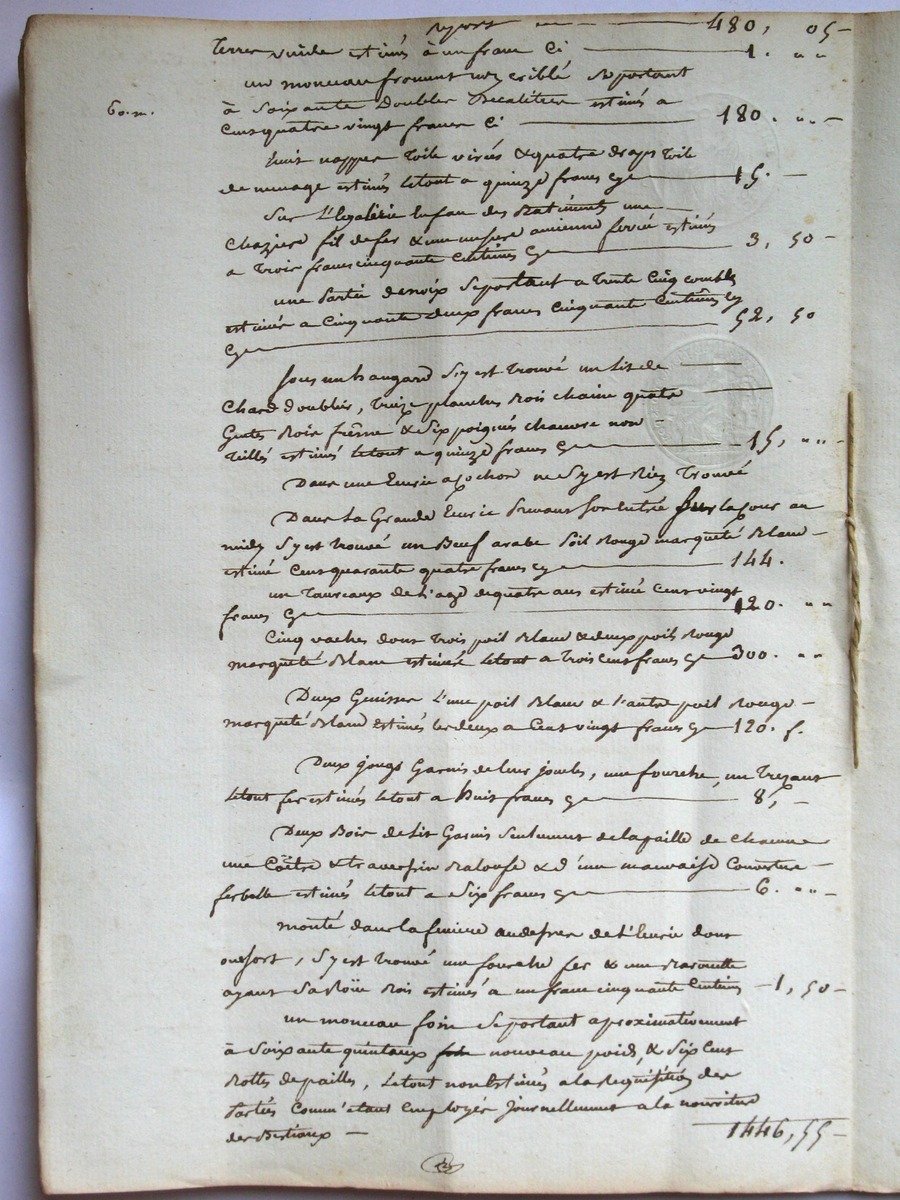 report — 480, 05 —
Terre vuide estimés à un franc Ci — 1. " "
un monceau froment non criblé Se portant
60. m. à Soixante doubles Decalitres estimés a
Cent quatre vingt francs Ci — 180. " " —
huit nappes Toile virés & quatre draps toile
de menage estimés le tout a quinze francs cy — 15. —
Sur L'egalerie la face des Batiments une —
Chaziere fil de fer & une mesure ancienne ferrée estimés
a Trois francs cinquante Centimes Cy — 3, 50 —
une Partie de noix Se portant a Trente Cinq combles
estimés a Cinquante deux francs Cinquante Centimes cy
Cy — 52, 50
Sous un hangard S'y est trouvé un lit de —
Chard doublier, Treize planches Bois chaine quatre
Bois frêne & Six poignés chanvre non —
Teillés estimés le tout a quinze francs Cy — 15, " " —
Dans une Ecurie a cochon ne S'y est Riez Trouvé
Dans La Grande Ecurie Prenant Son Entrée Sur la Cour au
midy S'y est trouvé un Beuf arabe Poil Rouge marqueté Blanc —
estimé Cent quarante quatre francs cy — 144.
un Taureaux de l'age de quatre ans estimé Cent vingt
francs Cy — 120. " "
Cinq vaches dont Trois poil Blanc & deux poil Rouge
marqueté Blanc estimés le tout a Trois Cent francs cy — 300. " "
Deux Genisses L'une poil Blanc & l'autre poil Rouge —
marqueté Blanc estimés les deux a Cent vingt francs Cy — 120. f.
Deux jougs Garnis de leur joucles, une fourche, un Trezant
le tout fer estimés le tout a huit francs cy — 8, —
Deux Bois de lit Garnis Seulement de la paille de chacune
une Coître & traversin Baloufe & d'une mauvaise Couverture —
estimés le tout a Six francs cy — 6. " " —
monté dans la feniere au dessus de l'Ecurie dont
on sort, S'y est trouvé une fourche fer & une
ayant Sa Roüe Bois estimés a un franc cinquante Centimes — 1, 50 —
un monceau foin Se portant aproximativement
à Soixante quintaux nouveau poids, & Six Cent
Bottes de pailles, le tout non Estimés a la Requisition des
Parties Comm'etant Employés journellement a la nourriture
des Bestiaux —
1446, 55 —